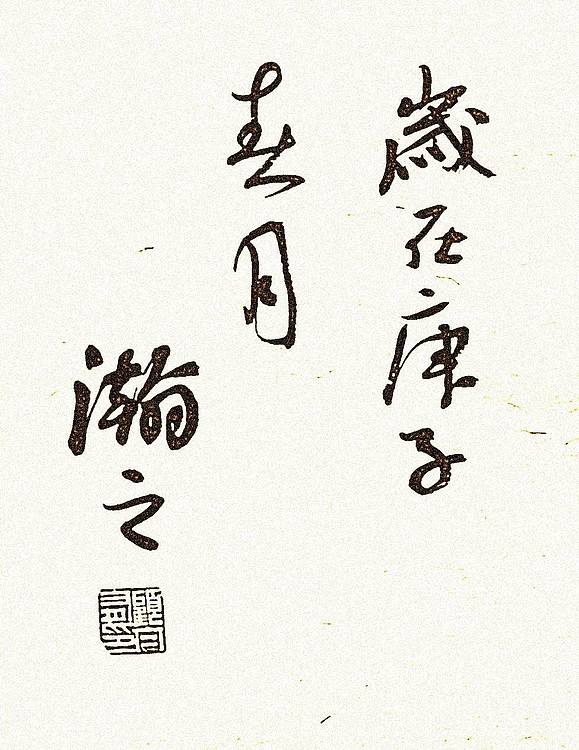 歲在庚子
春月
瀚之